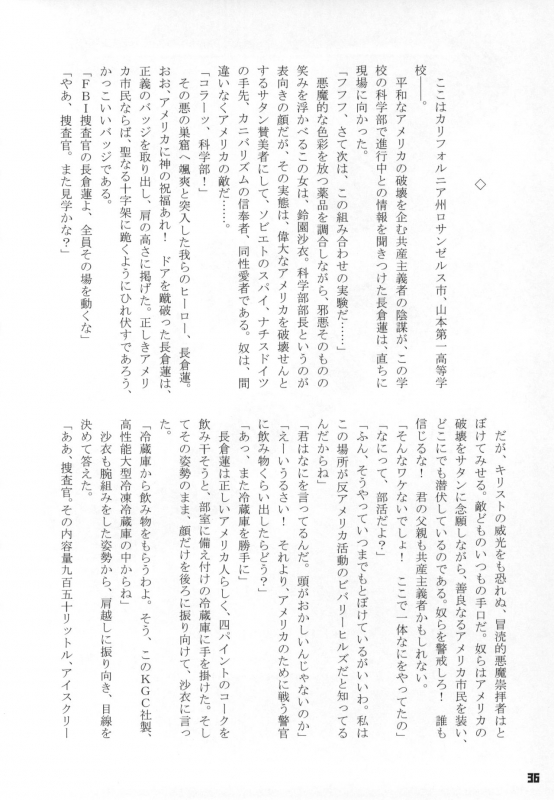 ◇
ここはカリフォルニア州ロサンゼルス市、山本第一高等学
校――。
平和なアメリカの破壊を企む共産主義者の陰謀が、この学
校の科学部で進行中との情報を聞きつけた長倉蓮は、直ちに
現場に向かった。
「フフフ、さて次は、この組み合わせの実験だ……」
悪魔的な色彩を放つ薬品を調合しながら、邪悪そのものの
笑みを浮かべるこの女は、鈴園沙衣。科学部部長というのが
表向きの顔だが、その実態は、偉大なアメリカを破壊せんと
するサタン賛美者にして、ソビエトのスパイ、ナチスドイツ
の手先、カニバリズムの信奉者、同性愛者である。奴は、間
違いなくアメリカの敵だ……。
「コラーッ、科学部！」
その悪の巣窟へ颯爽と突入した我らのヒーロー、長倉蓮。
おお、アメリカに神の祝福あれ！　ドアを蹴破った長倉蓮は、
正義のバッジを取り出し、肩の高さに掲げた。正しきアメリ
カ市民ならば、聖なる十字架に跪くようにひれ伏すであろう、
かっこいいバッジである。
「ＦＢＩ捜査官の長倉蓮よ、全員その場を動くな」
「やあ、捜査官。また見学かな？」
だが、キリストの威光をも恐れぬ、冒涜的悪魔崇拝者はと
ぼけてみせる。敵どものいつもの手口だ。奴らはアメリカの
破壊をサタンに念願しながら、善良なるアメリカ市民を装い、
どこにでも潜伏しているのである。奴らを警戒しろ！　誰も
信じるな！　君の父親も共産主義者かもしれない。
「そんなワケないでしょ！　ここで一体なにをやってたの」
「なにって、部活だよ？」
「ふん、そうやっていつまでもとぼけているがいいわ。私は
この場所が反アメリカ活動のビバリーヒルズだと知ってる
んだからね」
「君はなにを言ってるんだ。頭がおかしいんじゃないのか」
「えーいうるさい！　それより、アメリカのために戦う警官
に飲み物くらい出したらどう？」
「あっ、また冷蔵庫を勝手に」
長倉蓮は正しいアメリカ人らしく、四パイントのコークを
飲み干そうと、部室に備え付けの冷蔵庫に手を掛けた。そし
てその姿勢のまま、顔だけを後ろに振り向けて、沙衣に言っ
た。
「冷蔵庫から飲み物をもらうわよ。そう、このＫＧＣ社製、
高性能大型冷凍冷蔵庫の中からね」
沙衣も腕組みをした姿勢から、肩越しに振り向き、目線を
決めて答えた。
「ああ、捜査官。その内容量九百五十リットル、アイスクリー
36